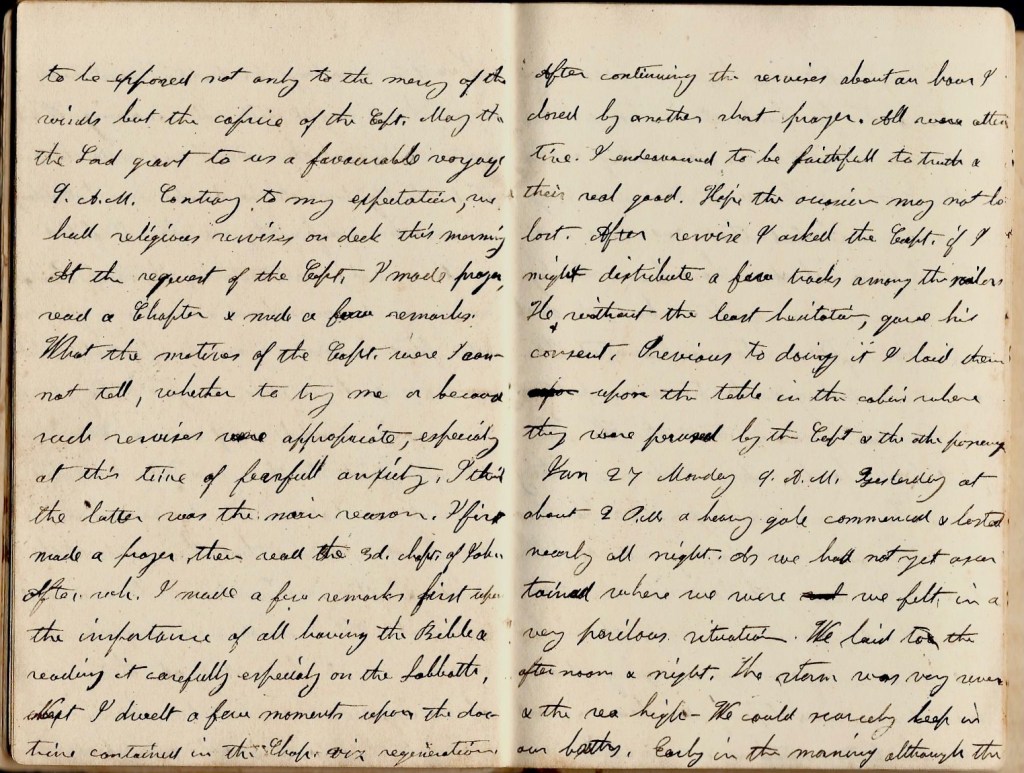 to be exposed not only to the mercy of the
winds but the caprice of the Capt. May the
the Lord grant to us a favourable voyage
9. A.M. Contrary to my expectation, we
had religious services on deck this morning
At the request of the Capt. I made prayer,
read a Chapter & made a few remarks.
What the motives of the Capt. were I can-
not tell, whether to try me or because
such services were appropriate, especialy
at this time of fearfull anxiety. I think
the latter was the main reason. I first
made a prayer, then read the 3d. chapt. of John
After wh. I made a few remarks first upon
the importance of all having the Bible &
reading it carefully especialy on the Sabbath,
Next I dwelt a few moments upon the doc-
trine contained in the Chap. viz regeneration.
After continuing the services about an hour I
closed by another short prayer. All were atten
tive. I endeavoured to be faithfull to truth &
their real good. Hope the occasion may not be
lost. After service I asked the Capt. if I
might distribute a few tracks among the sailors
He, without the least hesitation, gave his
consent. Previous to doing it I laid them
upon the table in the cabin where
they were perused by the Capt & the other passeng
Jan 27 Monday 9. A.M. Yesterday at
about 2 P.M. a heavy gale commenced & lasted
nearly all night. As we had not yet ascer
tained where we were we felt in a
very perilous situation. We laid too the
afternoon & night. The storm was very severe
& the sea high - We could scarcely keep in
our berths. Early in the morning although the